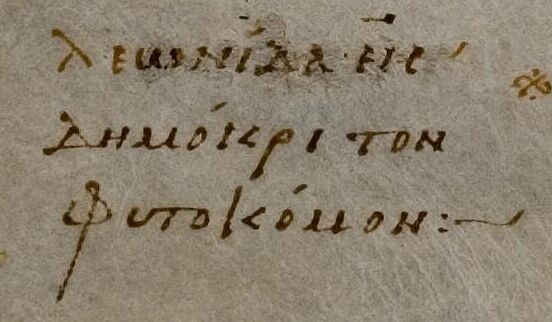 λεωνίδα εἰς
Δημόκριτον
φυτοκόμον:~